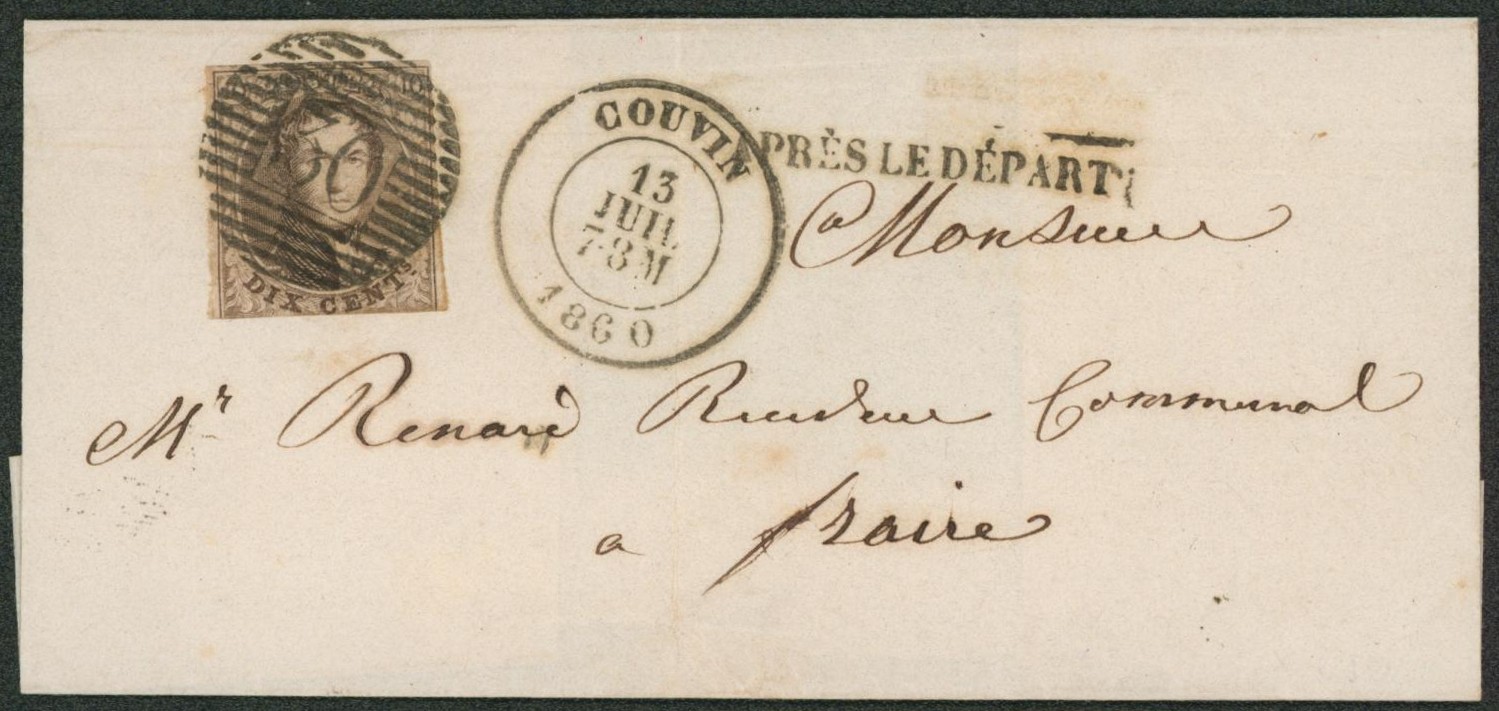 10
30
DIX CENTS
COUVIN
13
JUIL
7-8 M
1860
PRÈS LE DÉPART
a Monsieur
Mr Renard Receveur Communal
a fraire